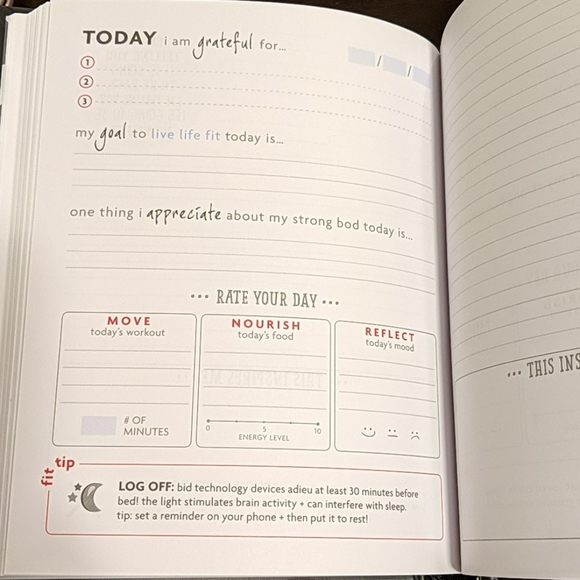 TODAY i am grateful for...
/ /
1
2
3
my goal to live life fit today is...
one thing i appreciate about my strong bod today is...
... RATE YOUR DAY ...
MOVE
today's workout
# OF
MINUTES
NOURISH
today's food
0 5 10
ENERGY LEVEL
REFLECT
today's mood
fit tip
LOG OFF: bid technology devices adieu at least 30 minutes before
bed! the light stimulates brain activity + can interfere with sleep.
tip: set a reminder on your phone + then put it to rest!
... THIS INS